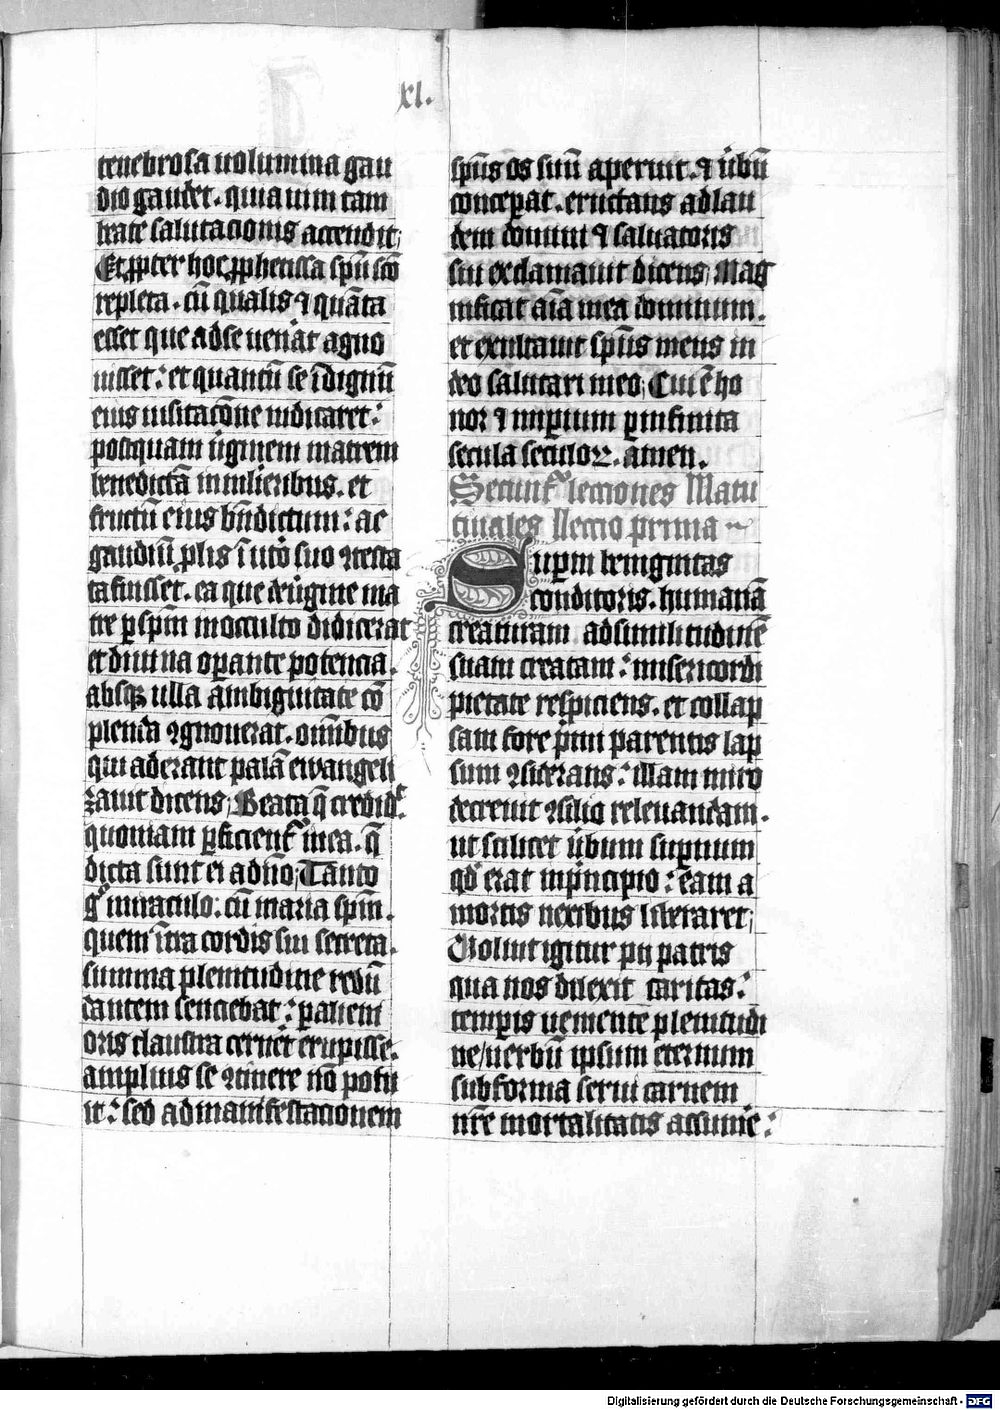 xl.
tenebrosa uolumina gau
dio gaudet. quia uim cam
tate salutacionis accendit;
Et ꝓpter hoc ꝓphetissa spū scō
repleta. cū qualis ⁊ quāta
esset que ad se uen̄at agno
uisset: et quantū se īdignū
eius uisitacōne iudicaret:
postquam ūginem matrem
benedictā in mulieribus. et
fructū eius bn̄dictum: ac
gaudiū plis ī utō suo
ta fuisset. ea que de ūgine ma
tre ꝑ spm̄ in occulto didicerat
et diuina oꝑante potencia.
absqꝫ ulla ambiguitate cō
plenda ꝯgnouerat. om̄ibus
qui aderant palā ewangeli
zauit dicens; Beata q̄ credid
quoniam ꝑficient᷑ in ea. q̄
dicta sunt ei a dn̄o; Tanto
gͦ miraculo: cū maria spm̄.
quem īt̄ra cordis sui secreta.
summa plenitudine redū
dantem senciebat: ꝑ alieni
oris claustra cern̄et erupisse.
amplius se ꝯtinere nō potu
it: sed ad manifestacionem
spūs os suū aperuit. ⁊ ūbū
conceꝑat. eructans ad lau
dem domini ⁊ saluatoris
sui exclamauit dicens; Mag
nificat aīa mea dominum.
et exultauit spūs meus in
deo salutari meo; Cui ē ho
nor ⁊ imꝑium ꝑ infinita
secula seculoꝝ. amen.
Secunt᷑ lectiones Matu
tinales Lectio prima
Suꝑni benignitas
conditoris. humanā
creaturam ad similitudinē
suam creatam: misericordi
pietate respiciens. et collap
sam fore p̄mi parentis lap
sum ꝯsiderans: illam miro
decreuit ꝯsilio releuandam.
ut scilicet ūbum suꝑnum
qd̄ erat in p̄ncipio: eam a
mortis nexibus liberaret;
Voluit igitur pij patris
qua nos dilexit caritas:
temꝑis uemente plenitudi
ne/uerbū ipsum eternum
sub forma serui carnem
nr̄e mortalitatis assume:
Digitalisierung gefördert durch die Deutsche Forschungsgemeinschaft - DFG